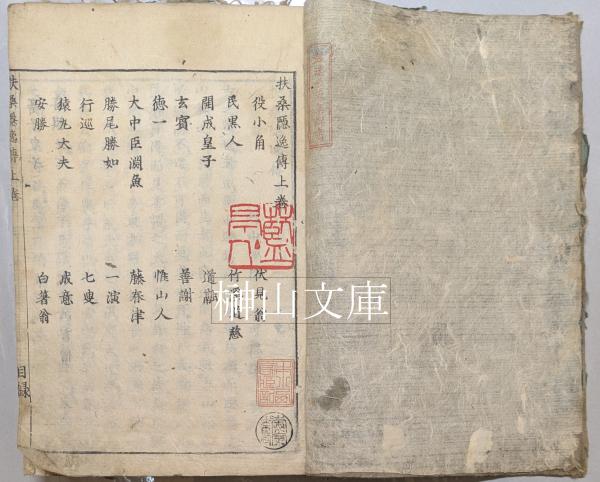 扶桑隱逸傳上卷
役小角　伏見翁
民黒人　竹溪道慈
開成皇子　道融
玄賓　善謝
徳一　惟山人
大中臣淵魚　藤春津
勝尾勝如　一演
行巡　七叟
猿丸大夫　成意
安勝　白箸翁
扶桑隱逸傳上卷　目録
榊山文庫